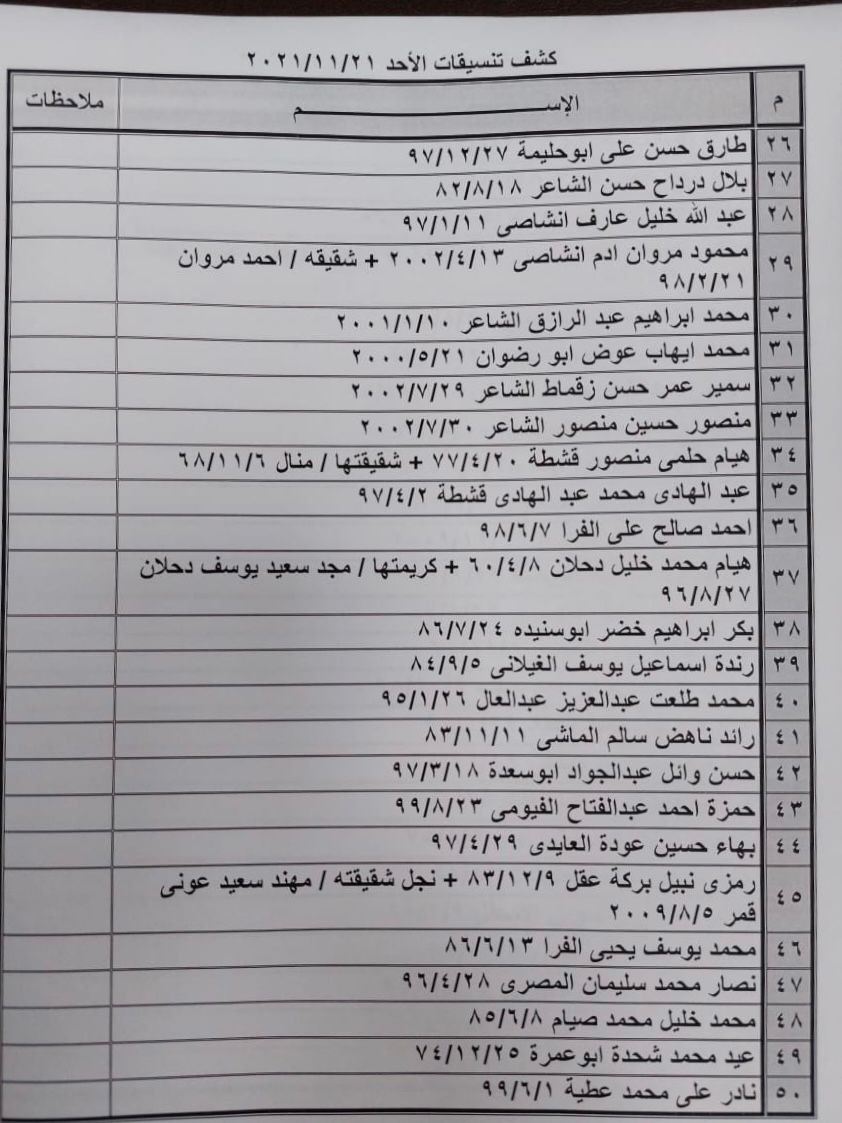 كشف تنسيقات الأحد ٢٠٢١/١١/٢١
م الإســـــــــم ملاحظات
٢٦ طارق حسن على ابوحليمة ٩٧/١٢/٢٧
٢٧ بلال درداح حسن الشاعر ٨٢/٨/١٨
٢٨ عبد الله خليل عارف انشاصى ٩٧/١/١١
٢٩ محمود مروان ادم انشاصى ٢٠٠٢/٤/١٣ + شقيقه / احمد مروان
٩٨/٢/٢١
٣٠ محمد ابراهيم عبد الرازق الشاعر ٢٠٠١/١/١٠
٣١ محمد ايهاب عوض ابو رضوان ٢٠٠٠/٥/٢١
٣٢ سمير عمر حسن زقماط الشاعر ٢٠٠٢/٧/٢٩
٣٣ منصور حسين منصور الشاعر ٢٠٠٢/٧/٣٠
٣٤ هيام حلمى منصور قشطة ٧٧/٤/٢٠ + شقيقتها / منال ٦٨/١١/٦
٣٥ عبد الهادى محمد عبد الهادى قشطة ٩٧/٤/٢
٣٦ احمد صالح على الفرا ٩٨/٦/٧
٣٧ هيام محمد خليل دحلان ٦٠/٤/٨ + كريمتها / مجد سعيد يوسف دحلان
٩٦/٨/٢٧
٣٨ بكر ابراهيم خضر ابوسنيده ٨٦/٧/٢٤
٣٩ رندة اسماعيل يوسف الغيلانى ٨٤/٩/٥
٤٠ محمد طلعت عبدالعزيز عبدالعال ٩٥/١/٢٦
٤١ رائد ناهض سالم الماشى ٨٣/١١/١١
٤٢ حسن وائل عبدالجواد ابوسعدة ٩٧/٣/١٨
٤٣ حمزة احمد عبدالفتاح الفيومى ٩٩/٨/٢٣
٤٤ بهاء حسين عودة العايدى ٩٧/٤/٢٩
٤٥ رمزى نبيل بركة عقل ٨٣/١٢/٩ + نجل شقيقته / مهند سعيد عونى
قمر ٢٠٠٩/٨/٥
٤٦ محمد يوسف يحيى الفرا ٨٦/٦/١٣
٤٧ نصار محمد سليمان المصرى ٩٦/٤/٢٨
٤٨ محمد خليل محمد صيام ٨٥/٦/٨
٤٩ عيد محمد شحدة ابوعمرة ٧٤/١٢/٢٥
٥٠ نادر على محمد عطية ٩٩/٦/١